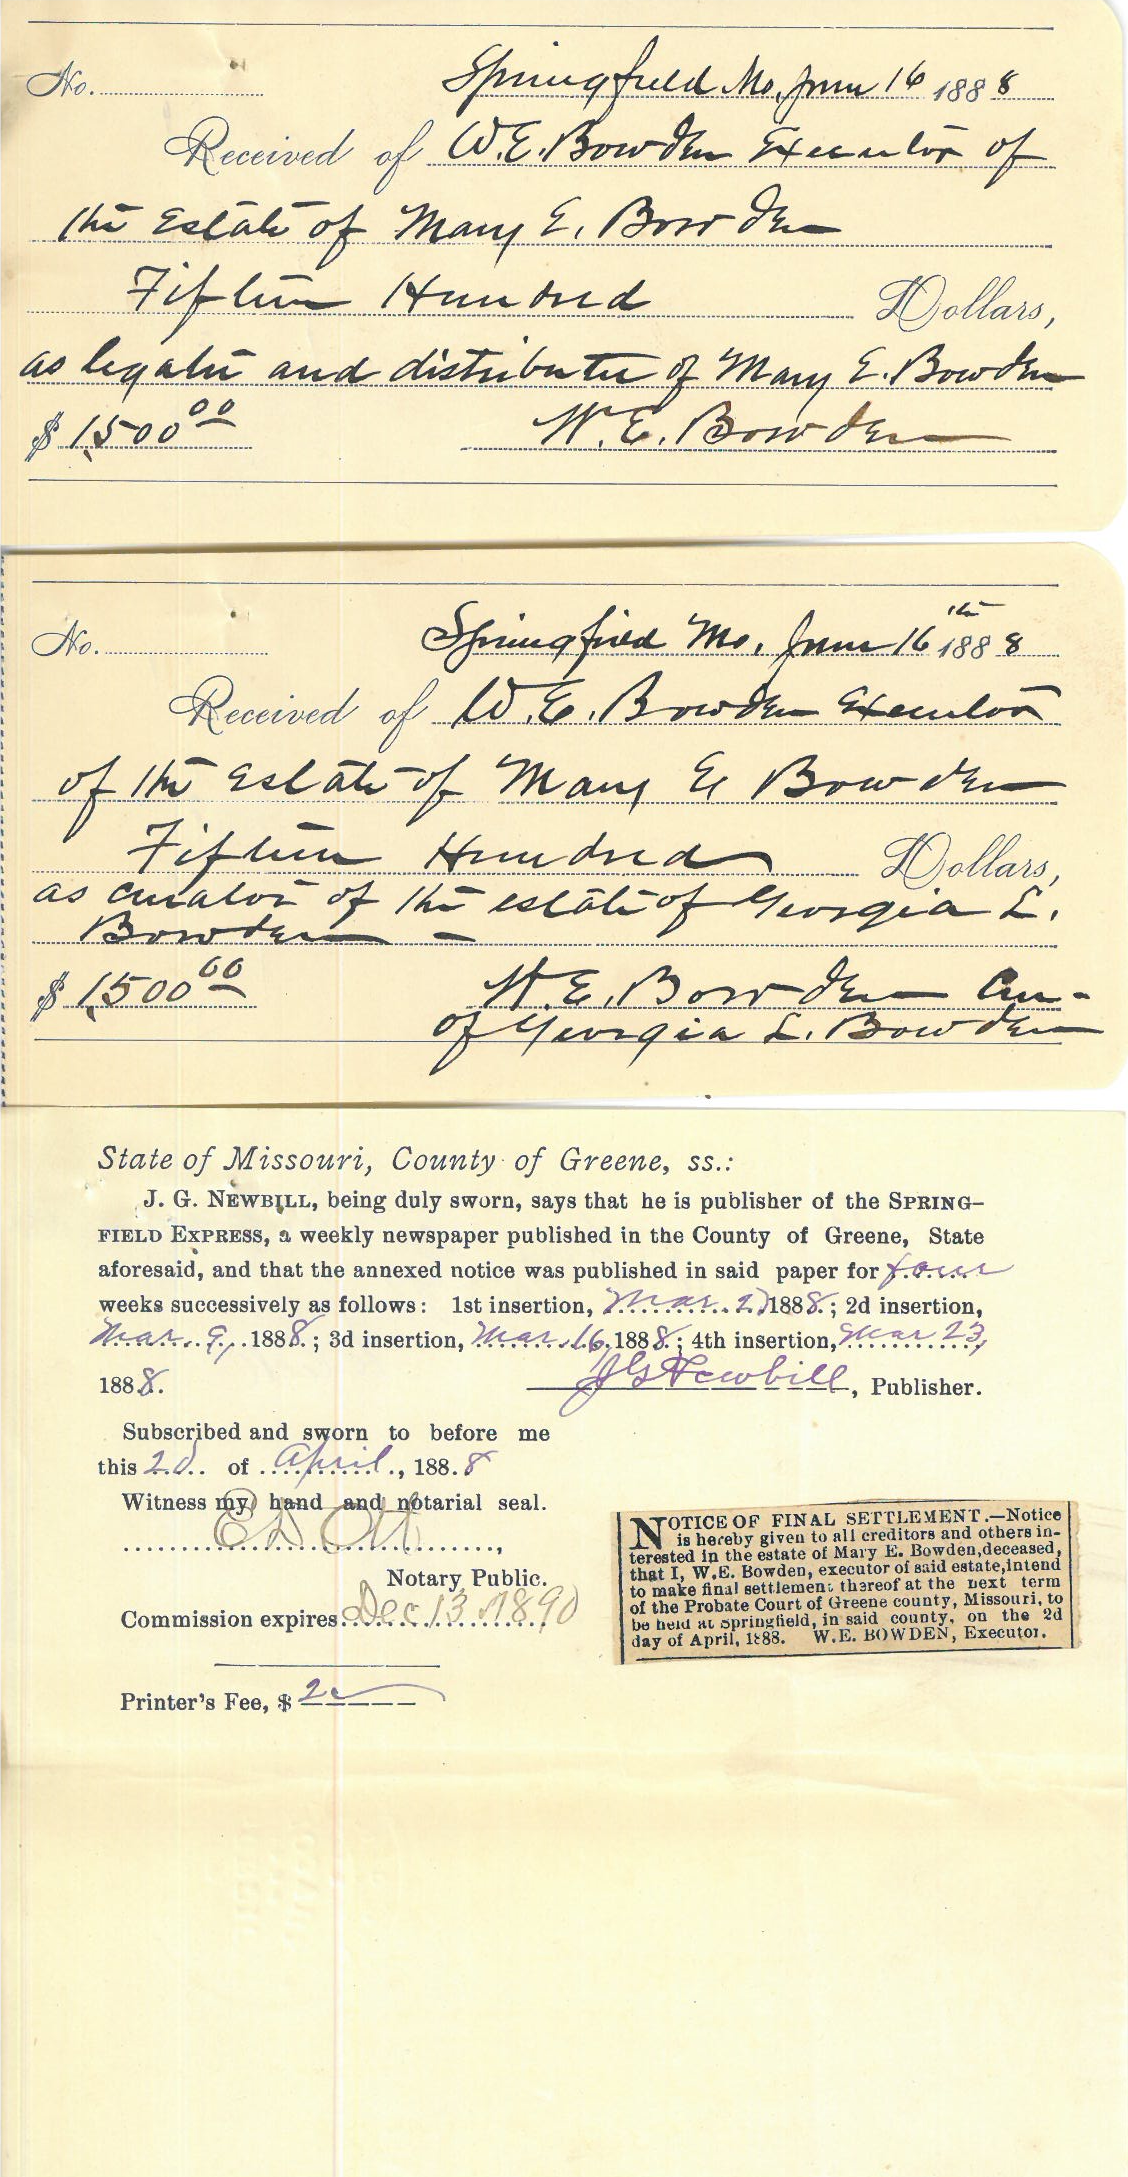 No.
Springfield Mo. June 16 1888
Received of W.E. Bowden Executor of
the Estate of Mary E. Bowden
Fifteen Hundred Dollars,
as legatee and distributee of Mary E. Bowden
$ 1,500 00 W. E. Bowden
No.
Springfield Mo. June 16th 1888
Received of W. E. Bowden Executor
of the Estate of Mary E Bowden
Fifteen Hundred Dollars,
as curator of the estate of Georgia L.
Bowden
$ 1,500 00 W. E. Bowden Cur-
of Georgia L. Bowden
State of Missouri, County of Greene, ss.:
J. G. NEWBILL, being duly sworn, says that he is publisher of the SPRING-
FIELD EXPRESS, a weekly newspaper published in the County of Greene, State
aforesaid, and that the annexed notice was published in said paper for four
weeks successively as follows: 1st insertion, Mar. 2, 1888.; 2d insertion,
Mar. 9, 1888.; 3d insertion, Mar. 16, 1888; 4th insertion, Mar 23,
1888. J G Newbill, Publisher.
Subscribed and sworn to before me
this 2d. of April., 188.8
Witness my hand and notarial seal.
E D Ott,
Notary Public.
Commission expires Dec 13 1890
Printer's Fee, $
NOTICE OF FINAL SETTLEMENT.—Notice
is hereby given to all creditors and others in-
terested in the estate of Mary E. Bowden, deceased,
that I, W.E. Bowden, executor of said estate, intend
to make final settlement thereof at the next term
of the Probate Court of Greene county, Missouri, to
be held at Springfield, in said county, on the 2d
day of April, 1888. W.E. BOWDEN, Executor.